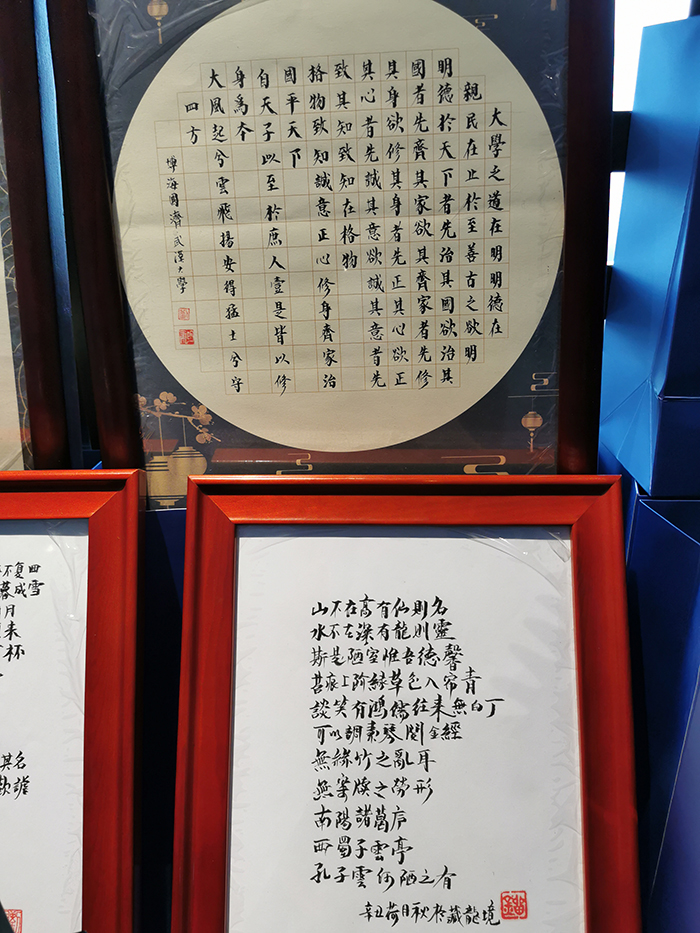 大學之道在明明德在
親民在止於至善古之欲明
明德於天下者先治其國欲治其
國者先齊其家欲其齊家者先修
其身欲修其身者先正其心欲正
其心者先誠其意欲誠其意者先
致其知致知在格物
格物致知誠意正心修身齊家治
國平天下
自天子以至於庶人壹是皆以修
身爲夲
大風起兮雲飛揚安得猛士兮守
四方
海國濟武漢大學
不復回
暮成雪
月
来
杯
其名
山不在高有仙則名
水不在深有龍則靈
斯是陋室惟吾德馨
苔痕上階緑草色入帘青
談笑有鴻儒往来無白丁
可以調素琴閱金經
無絲竹之亂耳
無案牘之勞形
南陽諸葛庐
西蜀子雲亭
孔子雲何陋之有
辛丑荷月秋於藏龍境